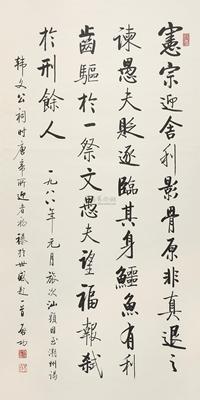 憲宗迎舍利影骨原非真退之
諫愚夫貶逐臨其身鱷魚有利
齒驅於一祭文愚夫望福報弒
於刑餘人 一九八八年元月旅次汕頭因至潮州謁
韓文公祠时唐帝所迎者初於世感題一首 启功